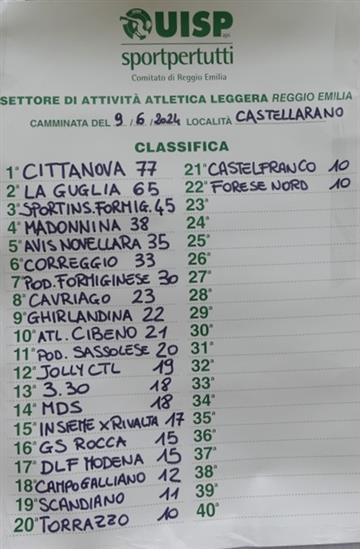 UISP aps
sportpertutti
Comitato di Reggio Emilia
SETTORE DI ATTIVITÀ ATLETICA LEGGERA REGGIO EMILIA
CAMMINATA DEL 9/6/2024 LOCALITÀ CASTELLARANO
CLASSIFICA
1ª CITTANOVA 77
2ª LA GUGLIA 65
3ª SPORTINS.FORMIG. 45
4ª MADONNINA 38
5ª AVIS NOVELLARA 35
6ª CORREGGIO 33
7ª POD.FORMIGINESE 30
8ª CAVRIAGO 23
9ª GHIRLANDINA 22
10ª ATL. CIBENO 21
11ª POD. SASSOLESE 20
12ª JOLLY CTL 19
13ª 3.30 18
14ª MDS 18
15ª INSIEME X RIVALTA 17
16ª GS ROCCA 15
17ª DLF MODENA 15
18ª CAMPOGALLIANO 12
19ª SCANDIANO 11
20ª TORRAZZO 10
21ª CASTELFRANCO 10
22ª FORESE NORD 10
23ª
24ª
25ª
26ª
27ª
28ª
29ª
30ª
31ª
32ª
33ª
34ª
35ª
36ª
37ª
38ª
39ª
40ª